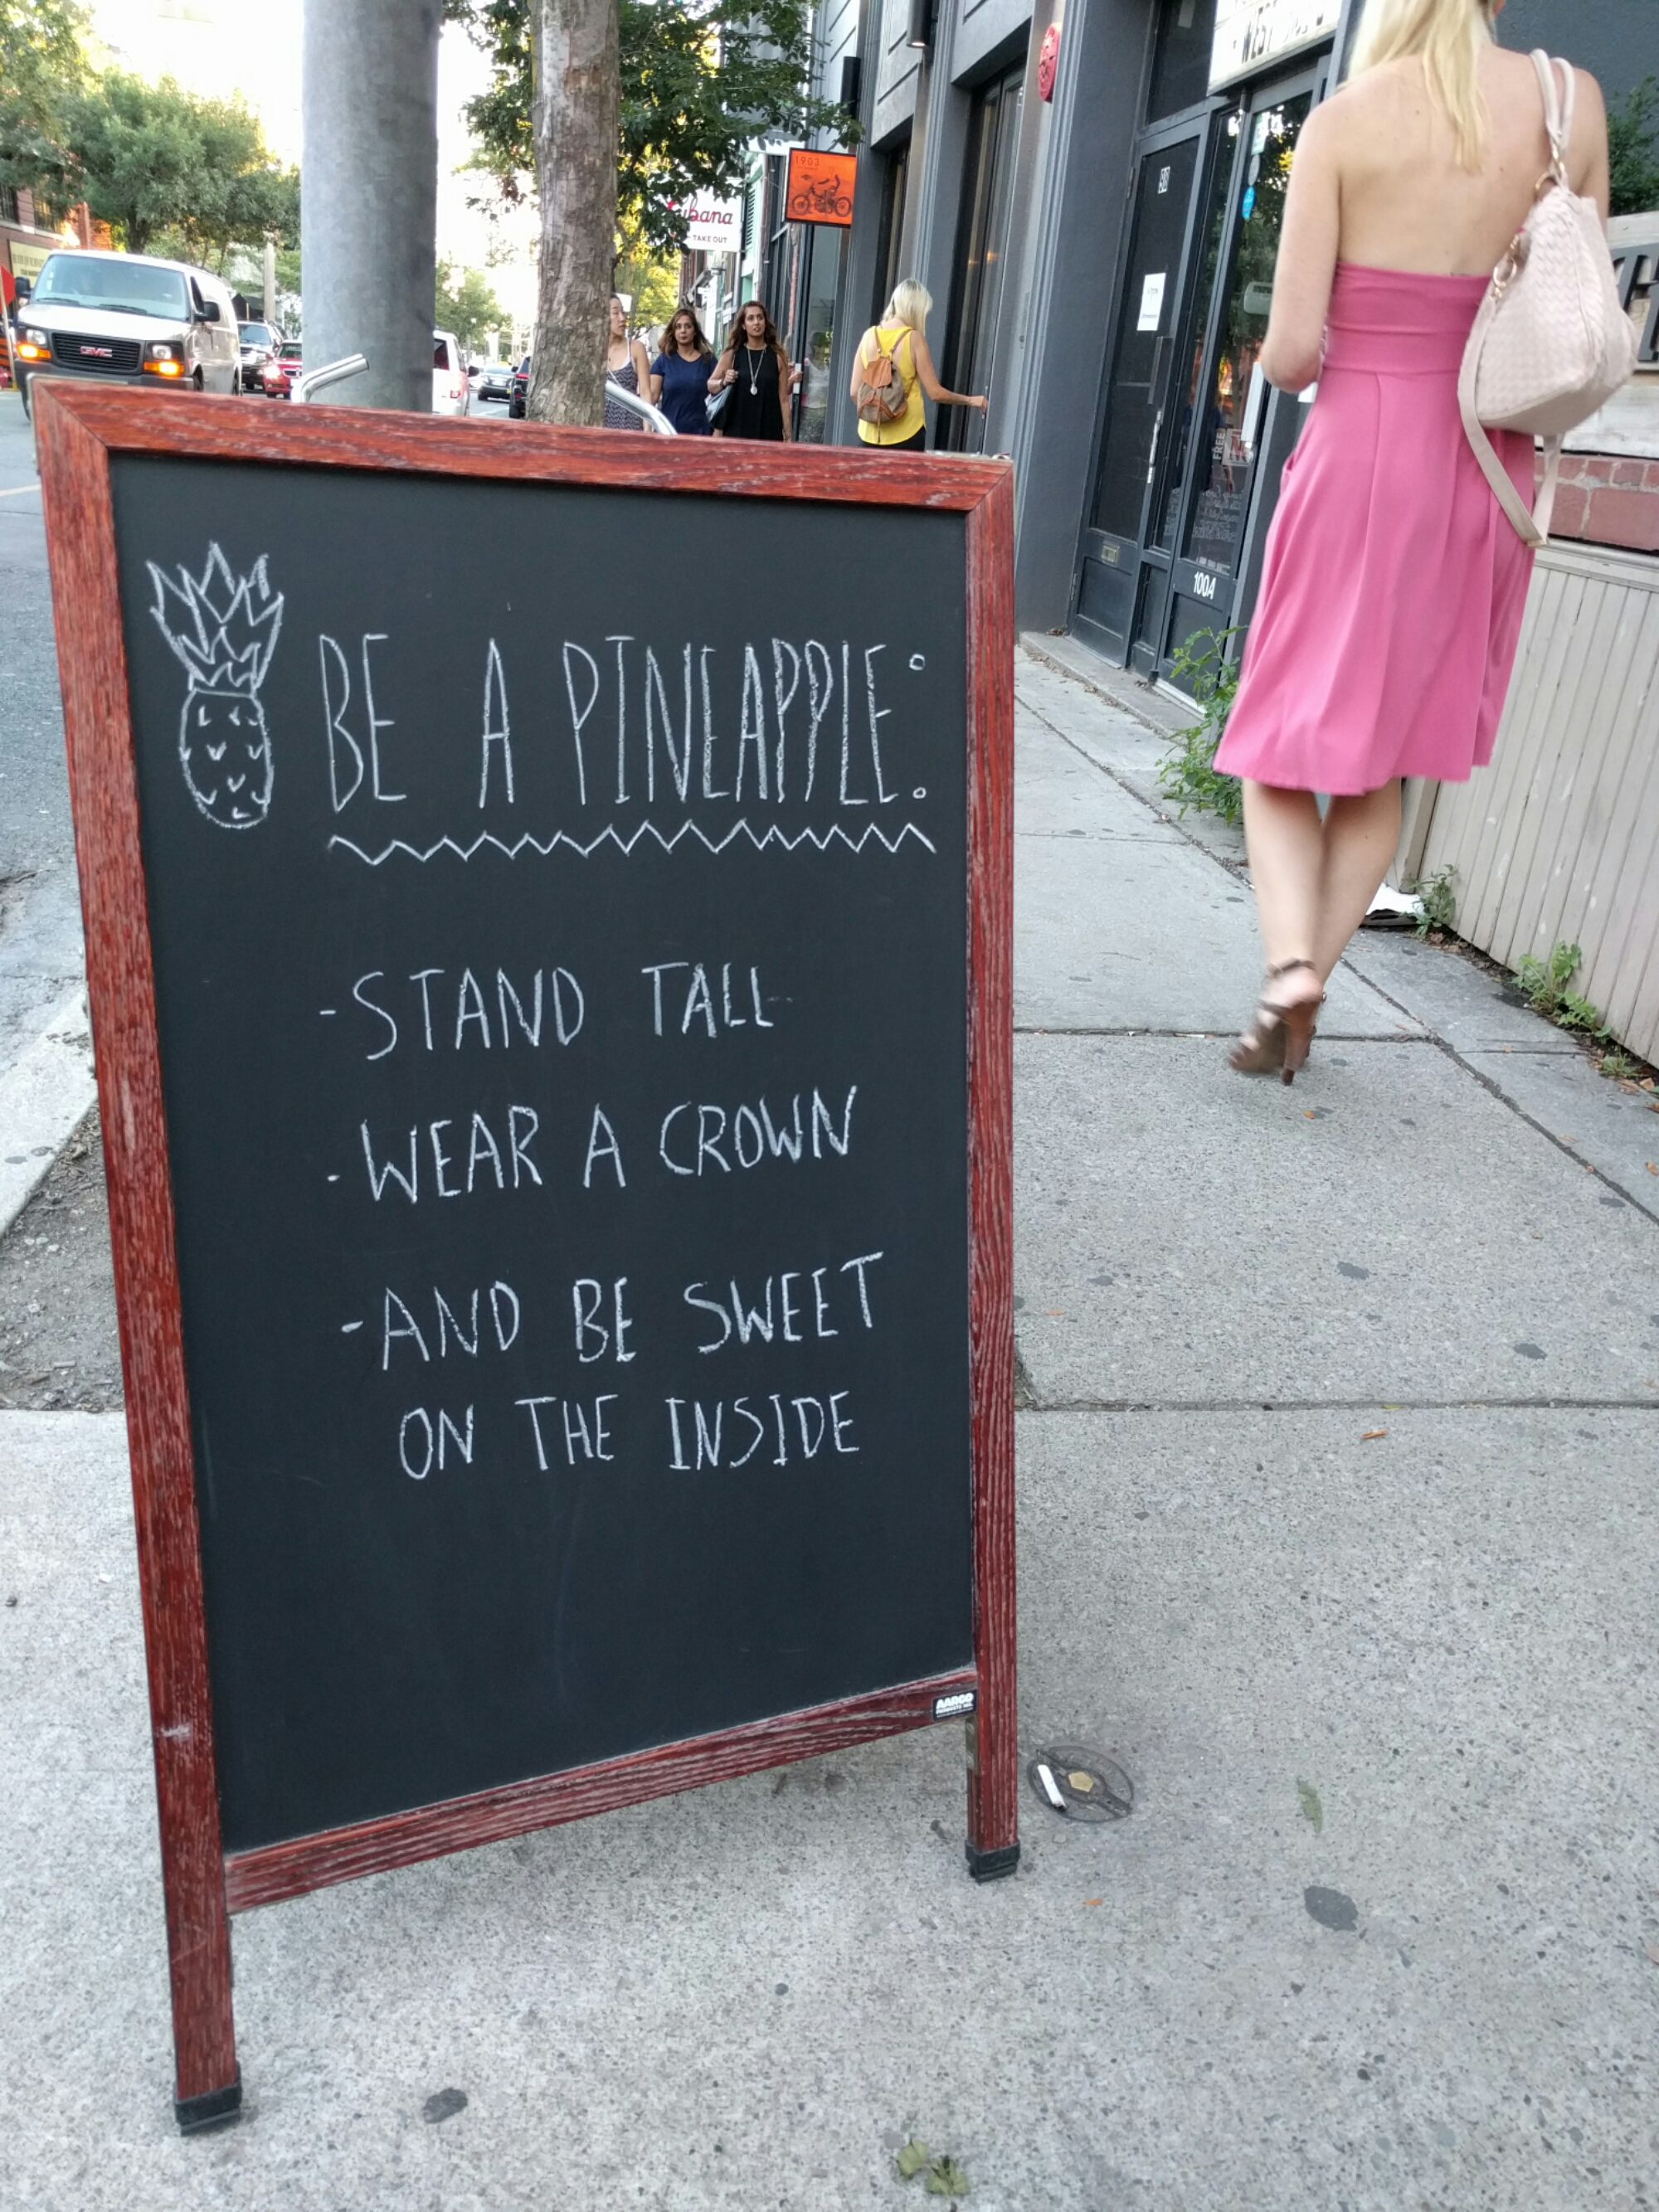 BE A PINEAPPLE:
-STAND TALL
-WEAR A CROWN
-AND BE SWEET
ON THE INSIDE
AARCO
1903
TAKE OUT
GMC
100A
FREE